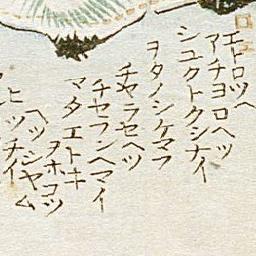 エトロツヘ
アチヨロヘツ
シユクトクシナイ
ヲタノシケマフ
チヤラセヘツ
チセフンヘマイ
マタエトキ
ヲホコツ
ヘツシヤム
ヒツチイ